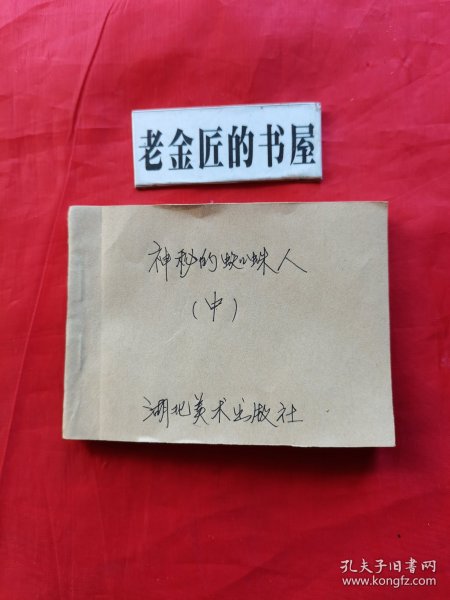 老金匠的书屋
神秘的蜘蛛人
（中）
湖北美术出版社
孔夫子旧书网
www.kongfz.com